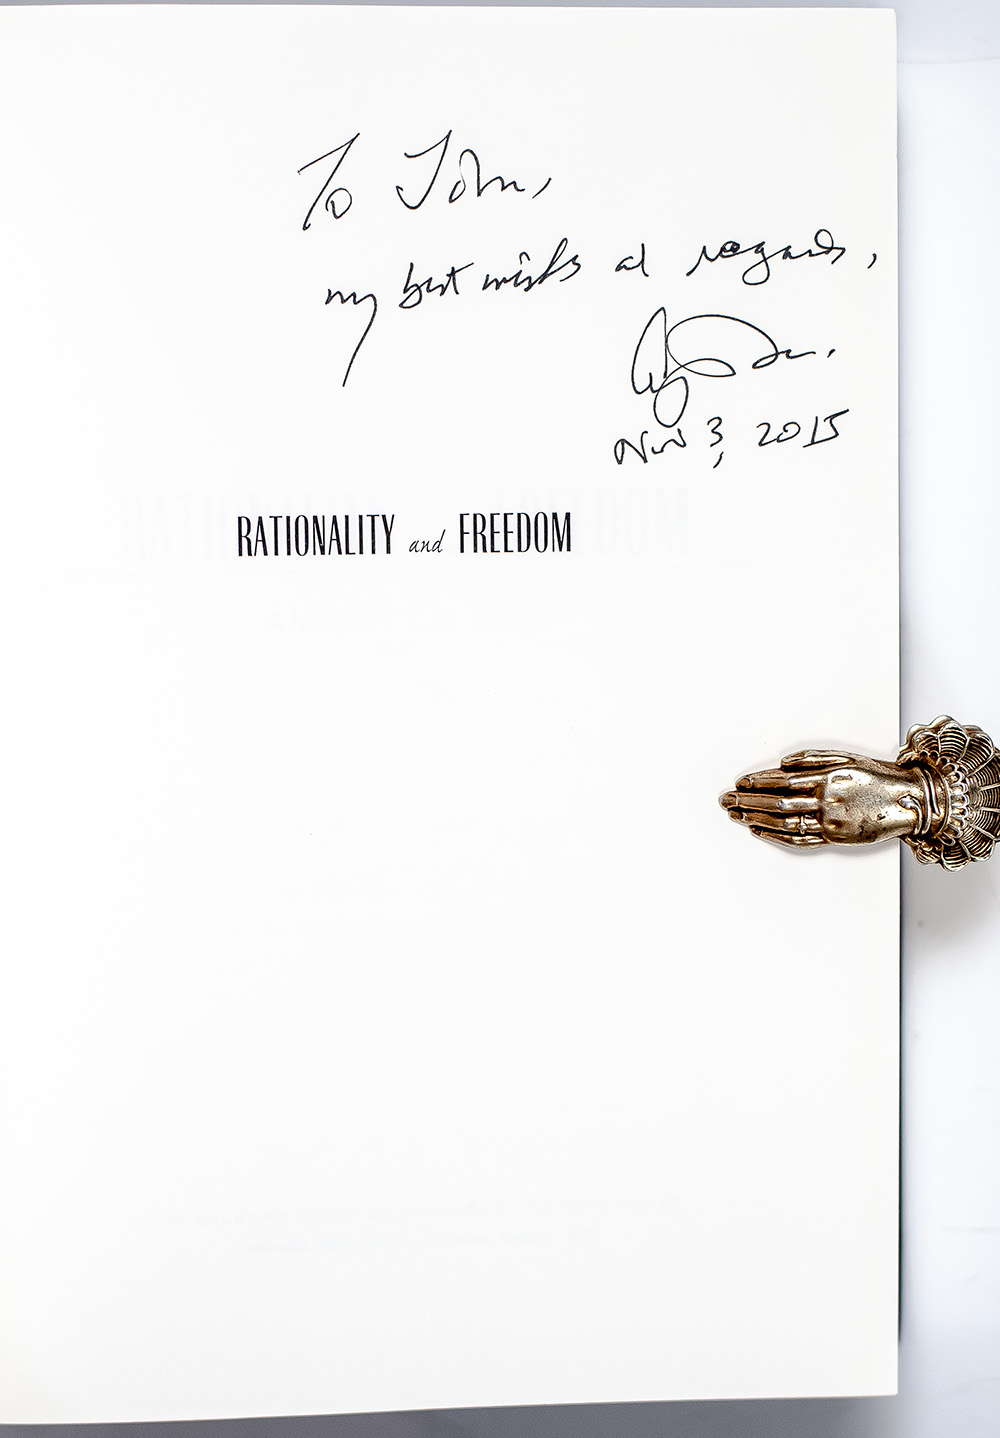 To John,
my best wishes and regards,
Nov 3, 2015
RATIONALITY and FREEDOM